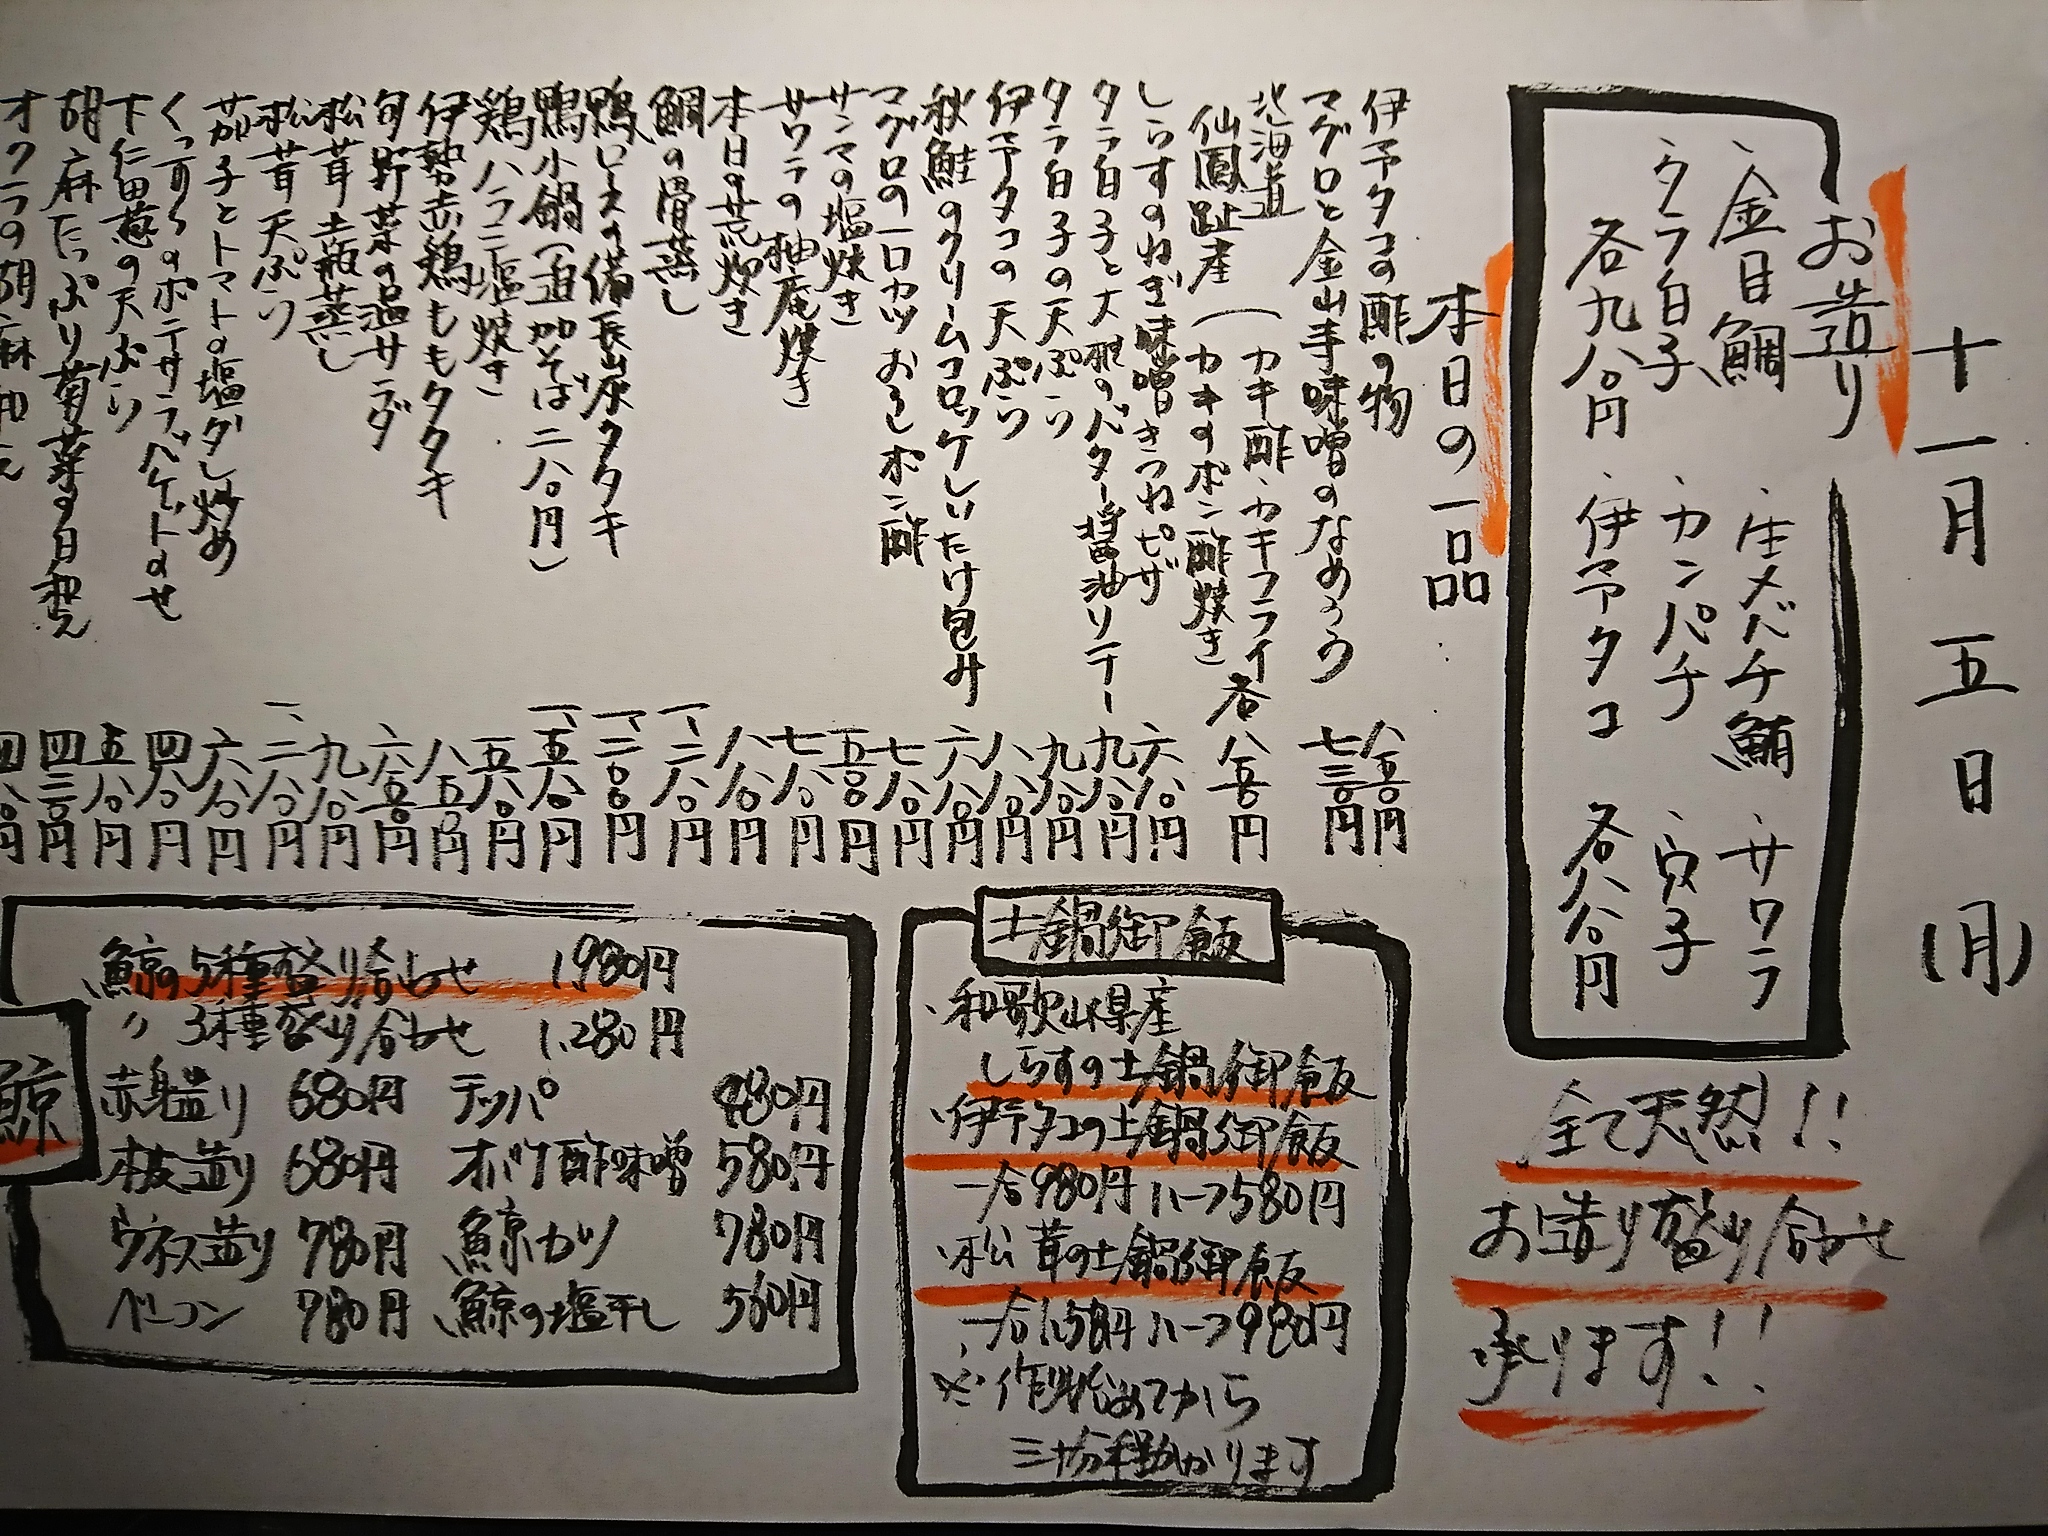 十一月五日(月)
お造り
・金目鯛 ・生メバチ鮪 ・サワラ
・タラ白子 ・カンパチ ・穴子
各九八〇円 ・伊予タコ 各八八〇円
全て天然!!
お造り盛り合わせ
承ります!!
本日の一品
伊予タコの酢の物 八五〇円
マグロと金山寺味噌のなめろう 七三〇円
北海道 (カキ酢・カキフライ
仙鳳趾産 (カキのポン酢焼き 各八五〇円
しらすのねぎ味噌きつねピザ 六八〇円
タラ白子と大根のバター醤油ソテー 九八〇円
タラ白子の天ぷら 九八〇円
伊予タコの天ぷら 八八〇円
秋鮭のクリームコロッケしいたけ包み 六八〇円
マグロの一口カツおろしポン酢 七八〇円
サンマの塩焼き 五八〇円
サワラの柚庵焼き 七八〇円
本日の荒炊き 八八〇円
鯛の骨蒸し 一、二八〇円
鴨ロースの備長炭タタキ 一、二〇〇円
鴨小鍋(追加そば二八〇円) 一、五八〇円
鶏ハラミ塩焼き 五八〇円
伊勢赤鶏ももタタキ 八五〇円
旬野菜の温サラダ 六五〇円
松茸土瓶蒸し 九八〇円
松茸天ぷら 一、二八〇円
茄子とトマトの塩ダレ炒め 六八〇円
くつろぎのポテサラバゲットのせ 四八〇円
下仁田葱の天ぷら 五八〇円
胡麻たっぷり菊菜の白和え 四三〇円
オクラの胡麻和え 四八〇円
土鍋御飯
・和歌山県産
しらすの土鍋御飯
・伊予タコの土鍋御飯
一合980円 ハーフ580円
・松茸の土鍋御飯
一合1,580円 ハーフ980円
※作り始めてから
三十分程掛かります
鯨
鯨の5種盛り合わせ 1,980円
〃 3種盛り合わせ 1,280円
赤身造り 680円 テッパ 480円
本皮造り 680円 オバケ酢味噌 580円
ウネス造り 780円 鯨カツ 780円
ベーコン 780円 鯨の塩干し 560円